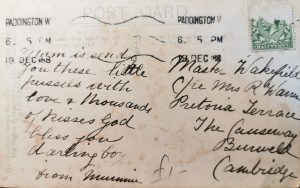 POST CARD
PADDINGTON W
6. 15 PM
19 DEC
PADDINGTON W
6. 15 PM
19 DEC
HALFPENNY
Mum is send
you these little
pussies with
love & thousands
of kisses God
bless you
darling boy
from Mummie
£1-
Master Wakefield
c/o Mrs R Warren
Pretoria Terrace
The Causeway
Burwell
Cambridge